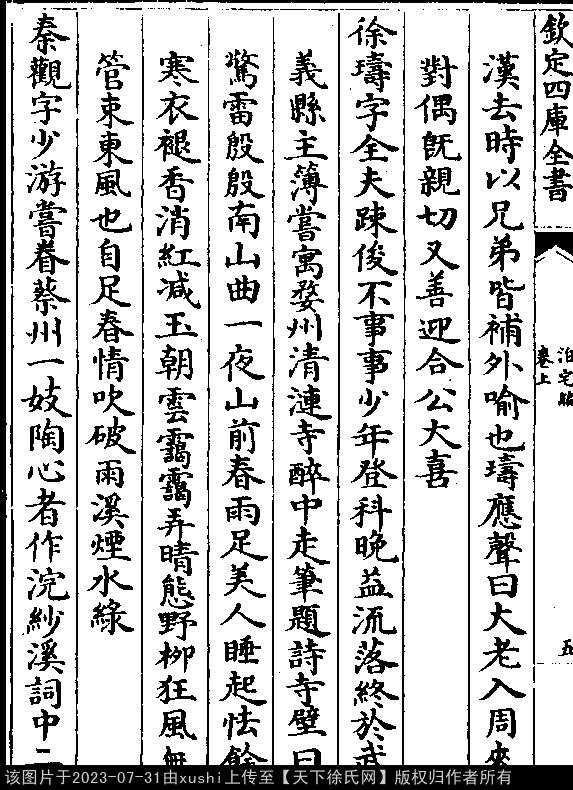 欽定四庫全書
泊宅編
卷上
五
漢去時以兄弟皆補外喻也璹應聲曰大老入周來
對偶旣親切又善迎合公大喜
徐璹字全夫踈俊不事事少年登科晚益流落終於武
義縣主簿嘗寓婺州清漣寺醉中走筆題詩寺壁曰
驚雷殷殷南山曲一夜山前春雨足美人睡起怯餘
寒衣褪香消紅减玉朝雲靄靄弄晴態野柳狂風無
管束東風也自足春情吹破雨溪煙水綠
秦觀字少游嘗眷蔡州一妓陶心者作浣紗溪詞中二
该图片于2023-07-31由xushi上传至【天下徐氏网】版权归作者所有